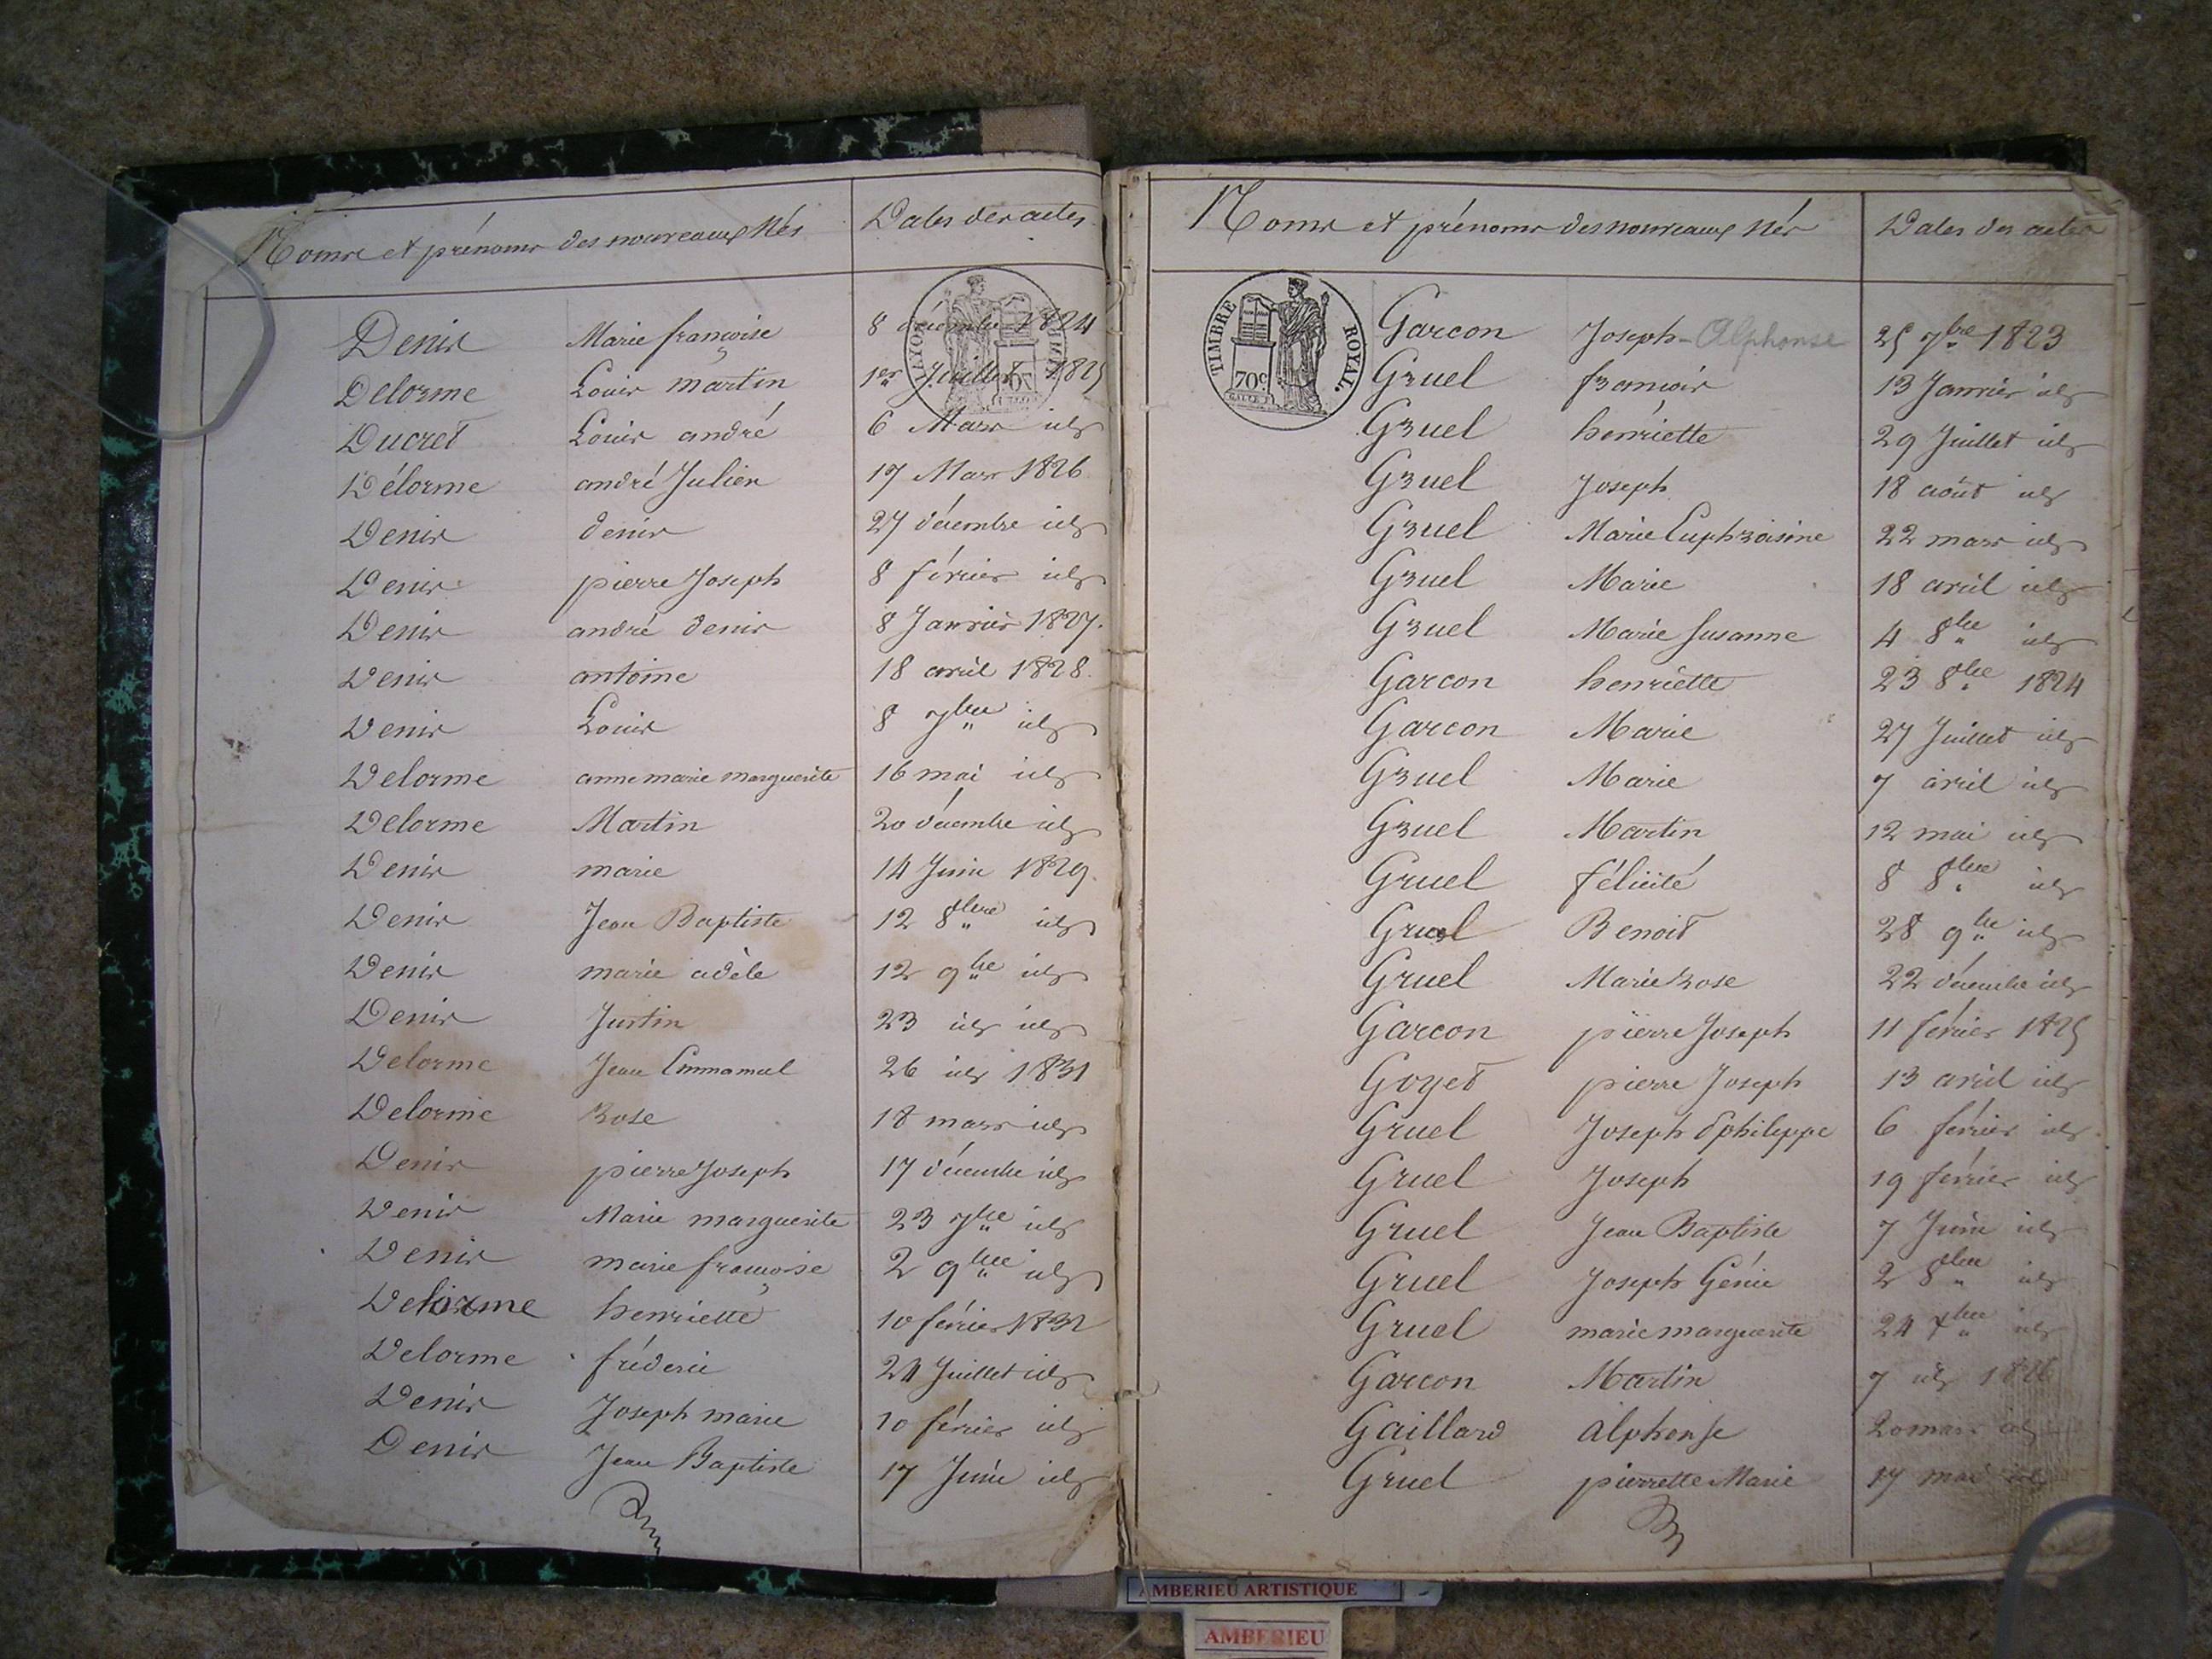 Noms et prénoms des nouveaux Nés Dates des actes
Denis Marie françoise 8 décembre 1824
Delorme Louis martin 1er Juillet 1825
Ducret Louis andré 6 Mars id
Délorme andré Julien 17 Mars 1826
Denis denis 27 décembre id
Denis pierre Joseph 8 février id
Denis andré denis 8 Janvier 1827.
Denis antoine 18 avril 1828.
Denis Louis 8 7bre id
Delorme anne marie marguerite 16 mai id
Delorme Martin 20 décembre id
Denis marie 14 Juin 1829.
Denis Jean Baptiste 12 8bre id
Denis marie adèle 12 9bre id
Denis Justin 23 id id
Delorme Jean Emmanuel 26 id 1831
Delorme Rose 18 mars id
Denis pierre Joseph 17 décembre id
Denis Marie marguerite 23 7bre id
Denis marie françoise 2 9bre id
Delorme henriette 10 février 1832
Delorme fréderic 24 Juillet id
Denis Joseph marie 10 février id
Denis Jean Baptiste 17 Juin id
Noms et prénoms des nouveaux Nés Dates des actes
TIMBRE ROYAL.
70c
Garcon Joseph-Alphonse 25 7bre 1823
Gruel francois 13 Janvier id
Gruel henriette 29 Juillet id
Gruel Joseph 18 août id
Gruel Marie Euphroisine 22 mars id
Gruel Marie 18 avril id
Gruel Marie Susanne 4 8bre id
Garcon henriette 23 8bre 1824
Garcon Marie 27 Juillet id
Gruel Marie 7 avril id
Gruel Martin 12 mai id
Gruel félicité 8 8bre id
Gruel Benoit 28 9bre id
Gruel Marie Rose 22 décembre id
Garcon pierre Joseph 11 février 1825
Goyet pierre Joseph 13 avril id
Gruel Joseph philippe 6 février id
Gruel Joseph 19 février id
Gruel Jean Baptiste 7 Juin id
Gruel Joseph Génie 2 8bre id
Gruel marie marguerite 24 xbre id
Garcon Martin 7 id 1826
Gaillard alphonse 20 mars id
Gruel pierrette Marie 17 mai id
AMBERIEU ARTISTIQUE
AMBERIEU